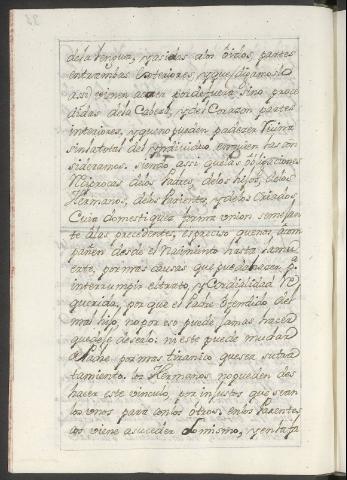 de la lengua, y asidas a los óidos, partes
entrambas exteriores, y que digamoslo
assi vienen a ser por de fuera sino proce
didas de la Cabeza, y del Corazon partes
interiores, y que no pueden padezer ruina
sin la total del Yndividuo, en quien las con
sideramos. siendo assi que las obligaciones
Reciprocas de los Padres, de los hijos, de los
Hermanos, de los Parientes, y de los Criados
Cuia domestiquez forma union semejan
te a las precedentes, es preciso que nos acom
pañen desde el Nacimiento hasta la mu
erte, por mas causas que puedan nacer pª
interrumpir el trato, y Cordialidad re
querida, por que el Padre ofendido del
mal hijo, no por eso puede jamas hacer
que deje de serlo: ni este puede mudar
de Padre por mas tiranico que sea su tra
tamiento. los Hermanos no pueden des
hacer este vinculo, por injustos que sean
los unos para con los otros, en los Parentes
cos viene a suceder lo mismo, y en la fa